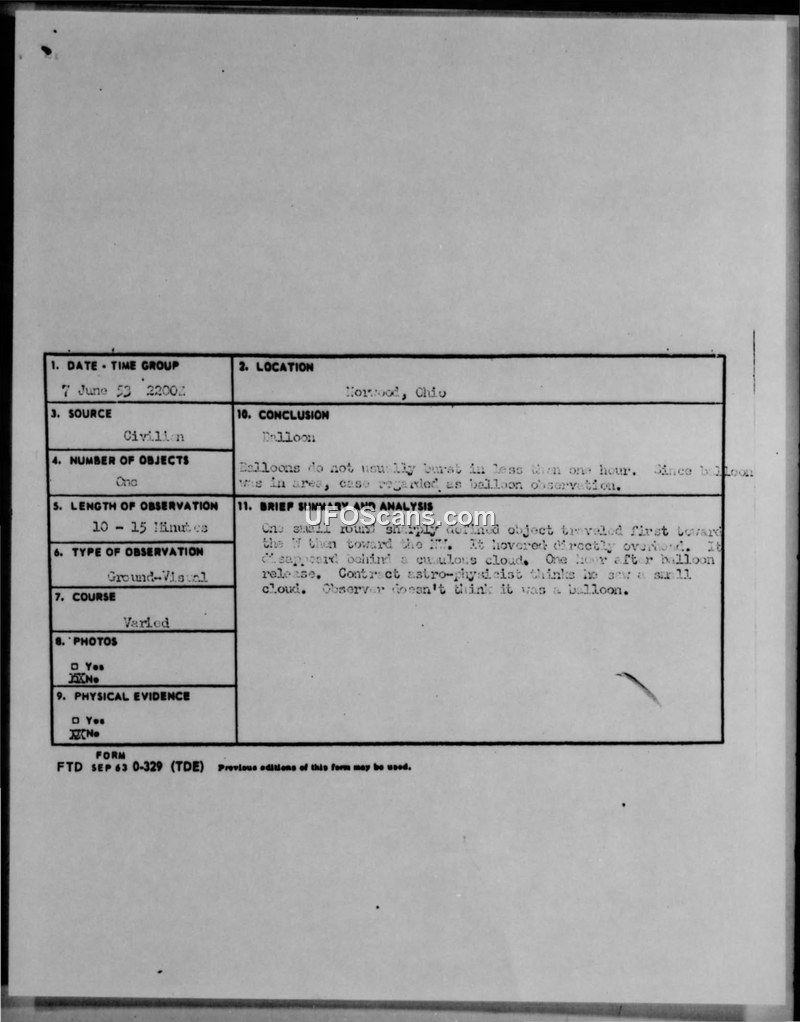 1. DATE - TIME GROUP
7 June 53 2200Z
2. LOCATION
Norwood, Ohio
3. SOURCE
Civilian
10. CONCLUSION
Balloon
Balloons do not usually burst in less than one hour. Since balloon
was in area, case regarded as balloon observation.
4. NUMBER OF OBJECTS
One
5. LENGTH OF OBSERVATION
10 - 15 Minutes
11. BRIEF SUMMARY AND ANALYSIS
UFOScans.com
One small round sharply defined object traveled first toward
the W then toward the NW. It hovered directly overhead. It
disappeard behind a cumulous cloud. One hour after balloon
release. Contract astro-physicist thinks he saw a small
cloud. Observer doesn't think it was a balloon.
6. TYPE OF OBSERVATION
Ground-Visual
7. COURSE
Varied
8. PHOTOS
□ Yes
XX No
9. PHYSICAL EVIDENCE
□ Yes
XX No
FORM
FTD SEP 63 0-329 (TDE) Previous editions of this form may be used.